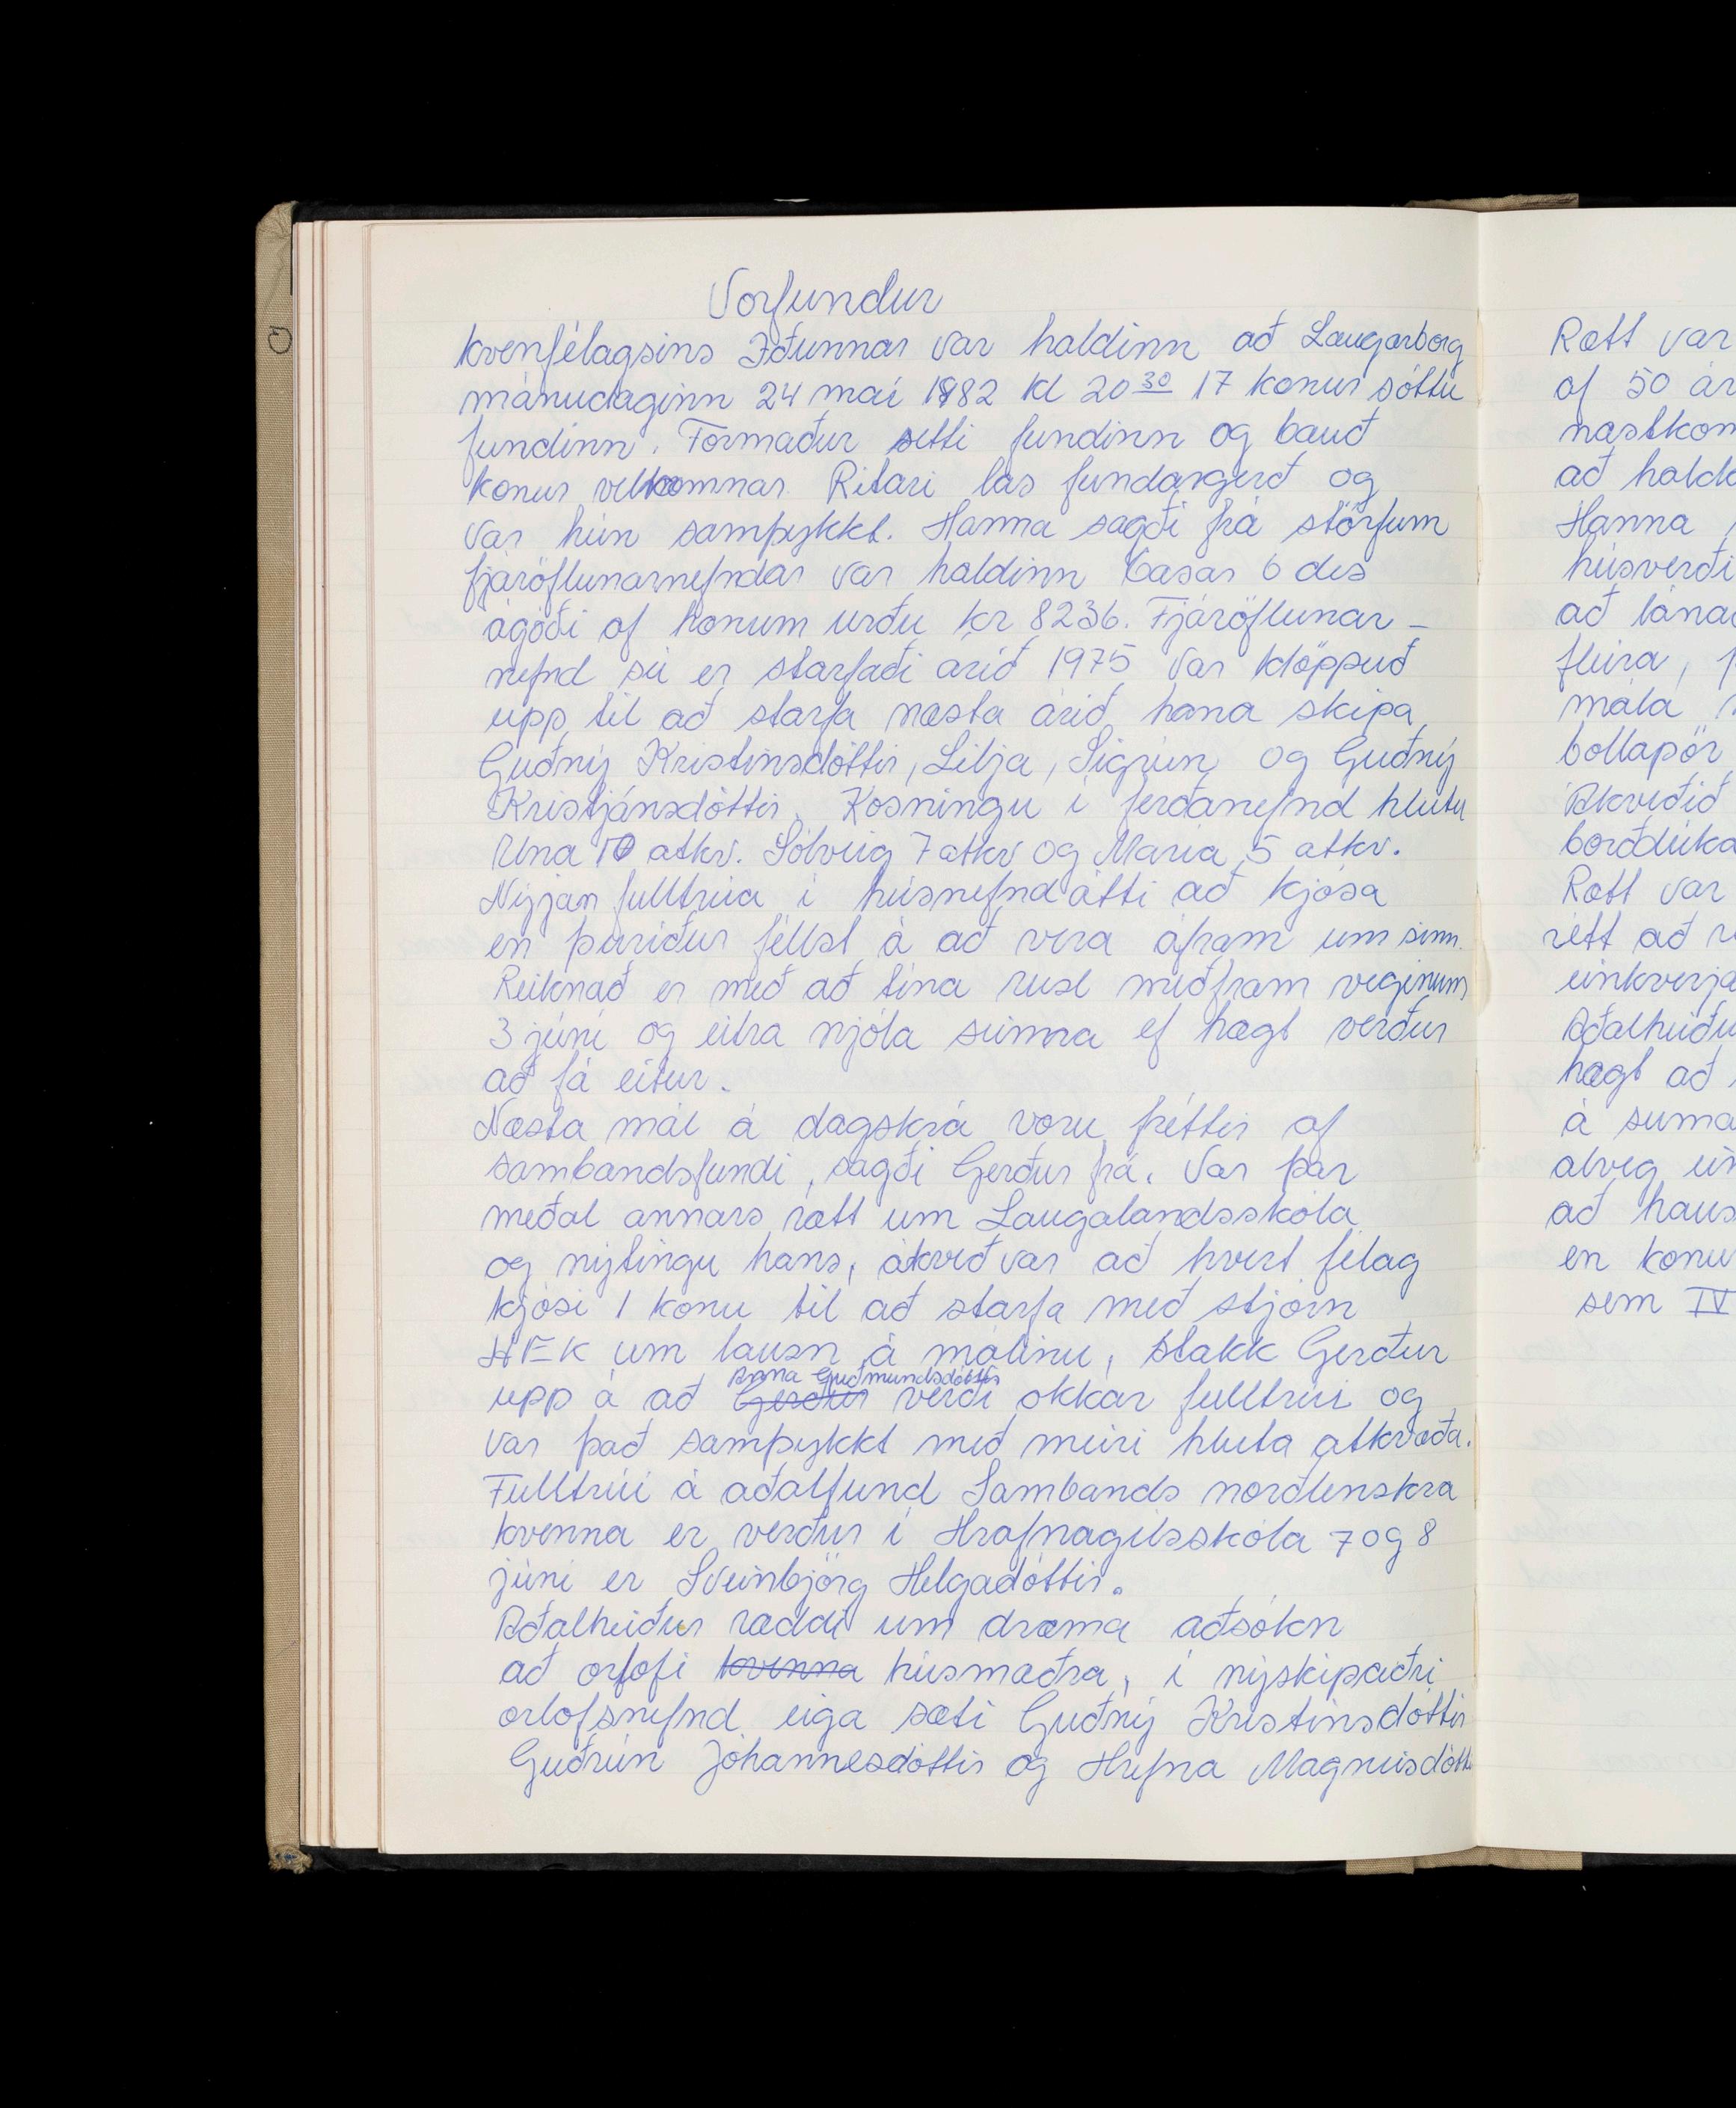 Vorfundur
kvenfélagsins Iðunnar var haldinn að Laugarborg
mánudaginn 24 maí 1982 kl 20 30 17 konur sóttu
fundinn. Formaður setti fundinn og bauð
konur velkomnar. Ritari las fundargerð og
var hún samþykkt. Hanna sagði frá störfum
fjáröflunarnefndar var haldinn basar 6 des
ágóði af honum urðu kr 8236. Fjáröflunar-
nefnd sú er starfaði árið 1975 var klöppuð
upp til að starfa næsta árið hana skipa
Guðný Kristinsdóttir, Lilja, Sigrún og Guðný
Kristjánsdóttir. Kosningu í ferðanefnd hlutu
Una 10 atkv. Sólveig 7 atkv og María 5 atkv.
Nýjan fulltrúa í húsnefnd átti að kjósa
en þuríður féllst á að vera áfram um sinn.
Reiknað er með að tína rusl meðfram veginum
3 júní og eitra njóla sunna ef hægt verður
að fá eitur.
Næsta mál á dagskrá voru fréttir af
sambandsfundi, sagði Gerður frá. Var þar
meðal annars rætt um Laugalandsskóla
og nýtingu hans, ákveð var að hvert félag
kjósi 1 konu til að starfa með stjórn
HEK um lausn á málinu, stakk Gerður
Anna Guðmundsdóttir
upp á að Gerður verði okkar fulltrúi og
var það samþykkt með meiri hluta atkvæða.
Fulltrúi á aðalfund Sambands norðlenskra
kvenna er verður í Hrafnagilsskóla 7 og 8
júní er Sveinbjörg Helgadóttir.
Aðalheiður ræddi um dræma aðsókn
að orlofi kvenna húsmæðra, í nýskipaðri
orlofsnefnd eiga sæti Guðný Kristinsdóttir
Guðrún Jóhannesdóttir og Hrefna Magnúsdótti
Rætt var
af 50 ár
næstkom
að halda
Hanna
húsverði
að lána
fleira, þ
mála
bollapör
Ákveðið
borðdúka
Rætt var
rétt að
einkverja
Aðalheiðu
hægt að
á suma
alveg ein
að haus
en konu
sem IV